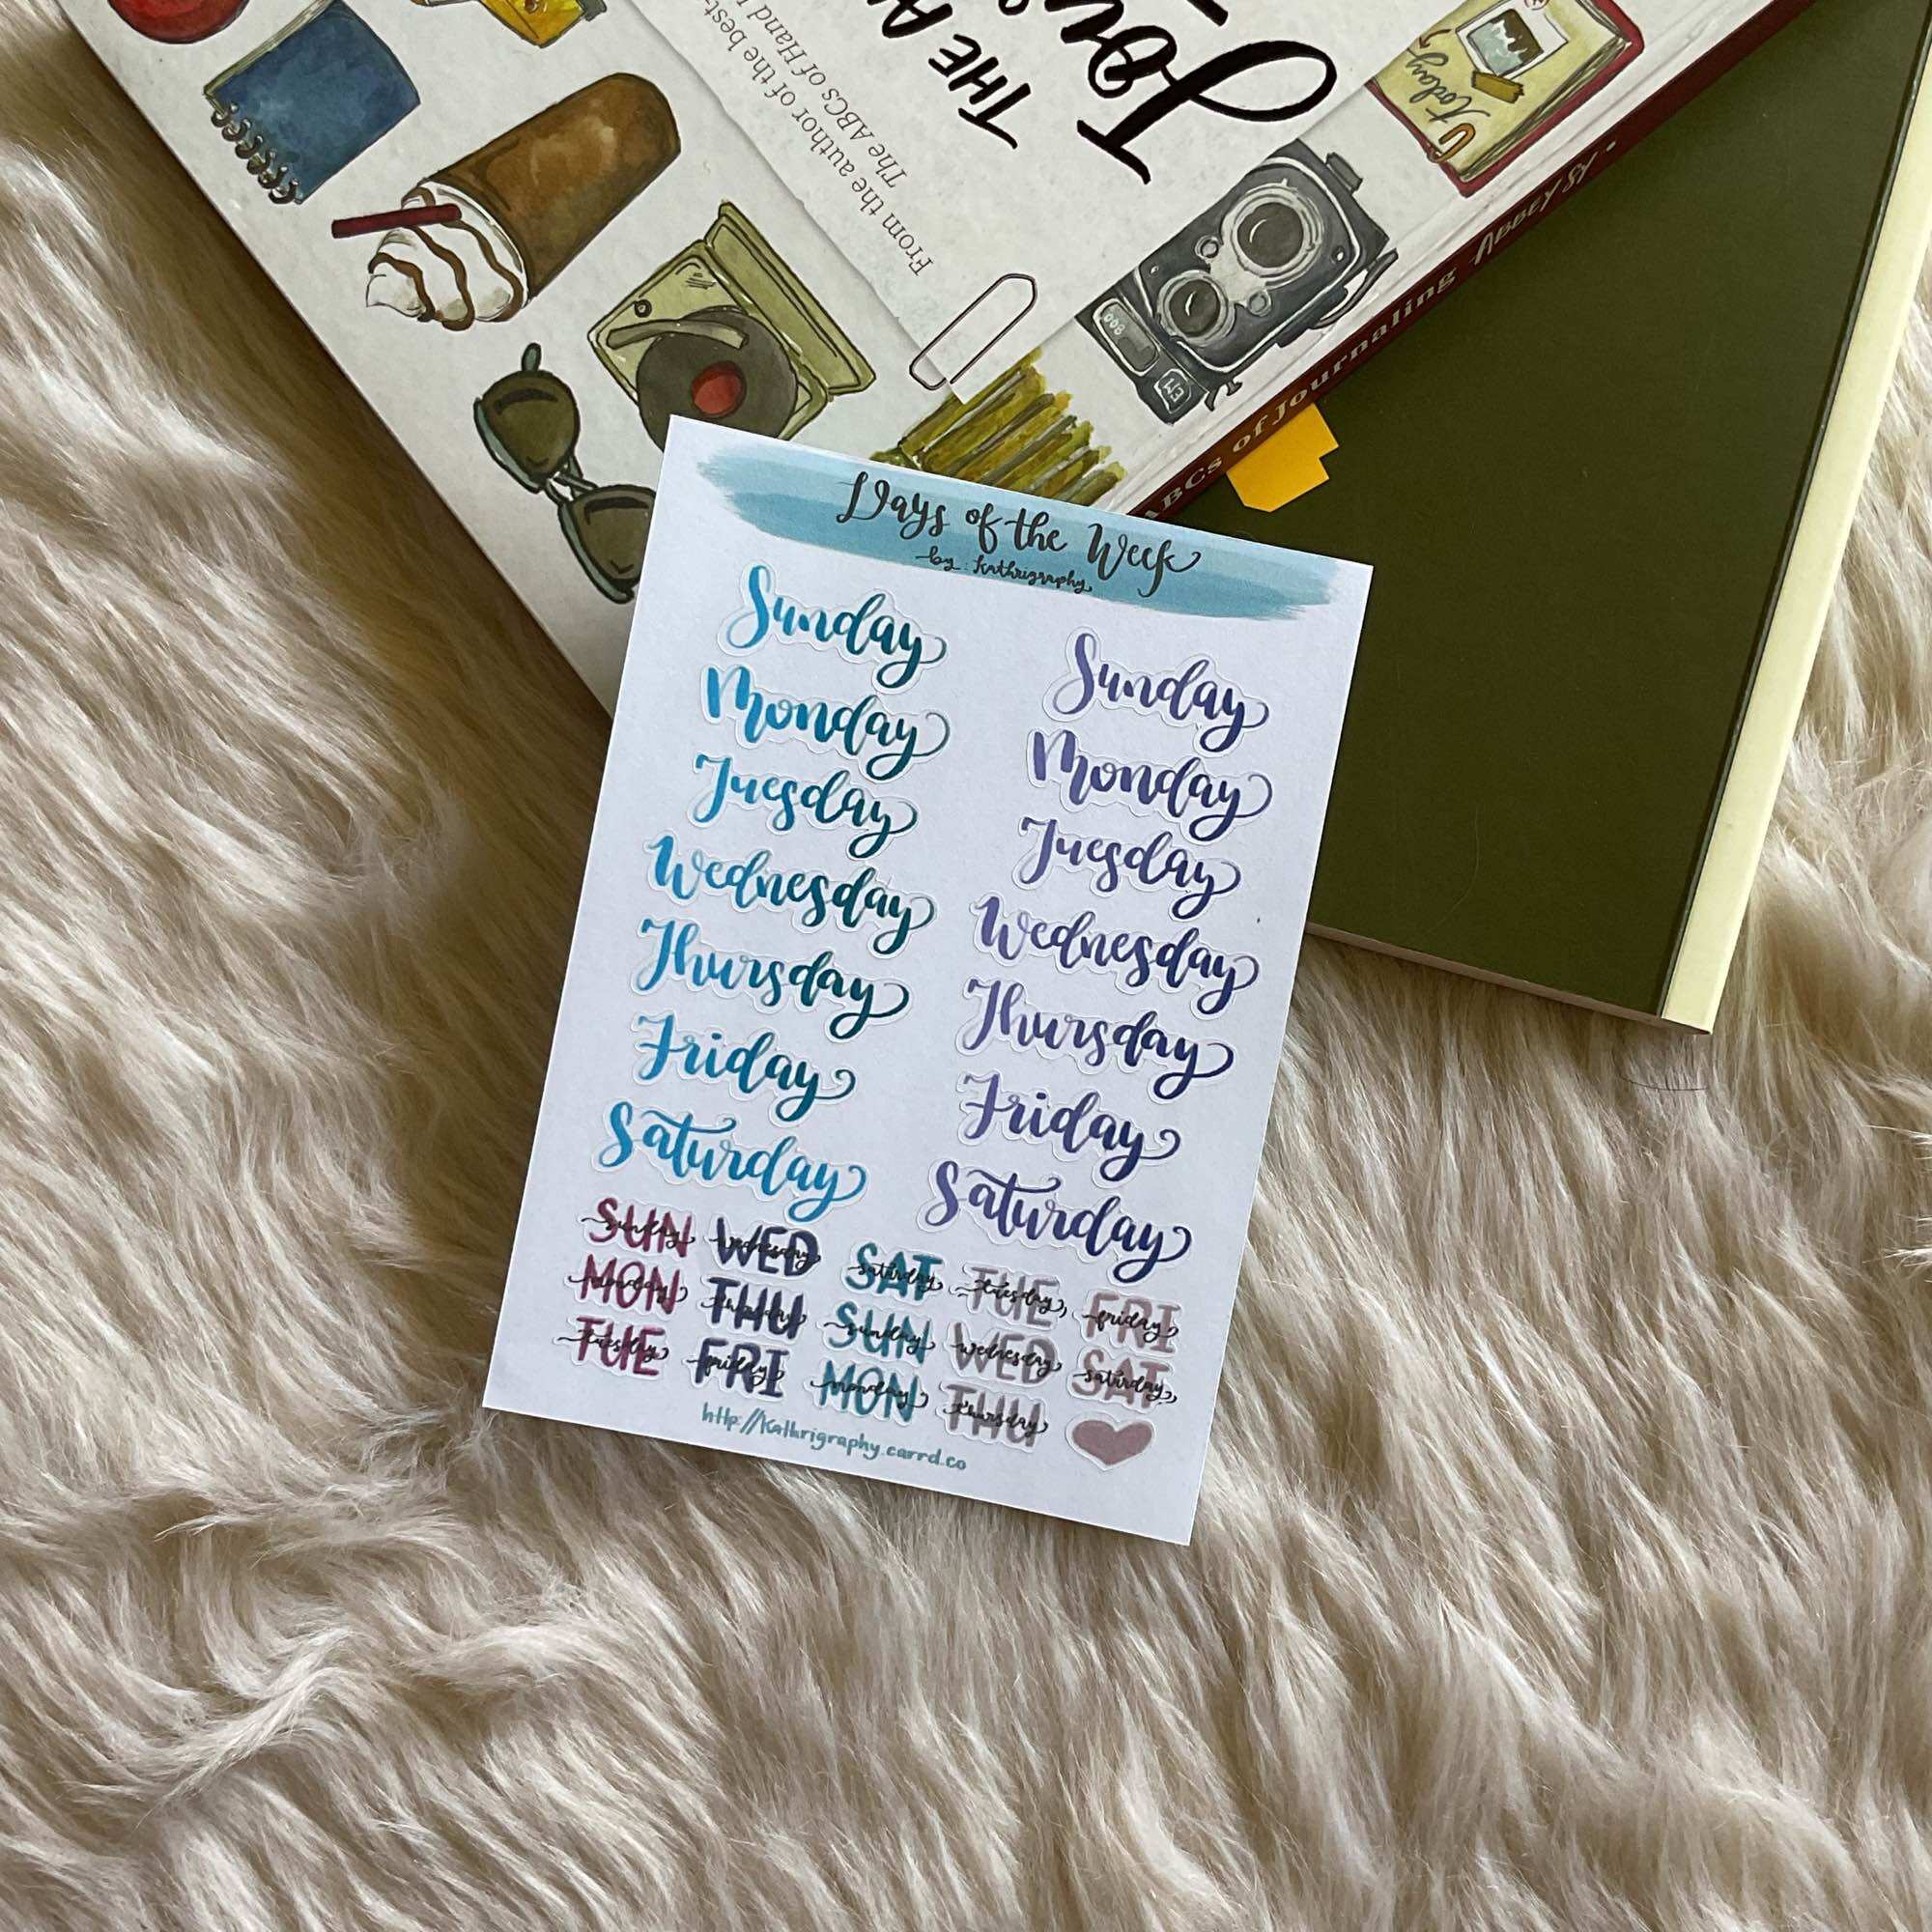 THE
From the author of the best-
The ABCs of Hand
today
ABCs of Journaling ABBEY SY
Days of the Week
by: kathrigraphy
Sunday
Monday
Tuesday
Wednesday
Thursday
Friday
Saturday
Sunday
Monday
Tuesday
Wednesday
Thursday
Friday
Saturday
SUN sunday
MON monday
TUE tuesday
WED wednesday
THU thursday
FRI friday
SAT saturday
SUN sunday
MON monday
TUE tuesday
WED wednesday
THU thursday
FRI friday
SAT saturday
http://kathrigraphy.carrd.co